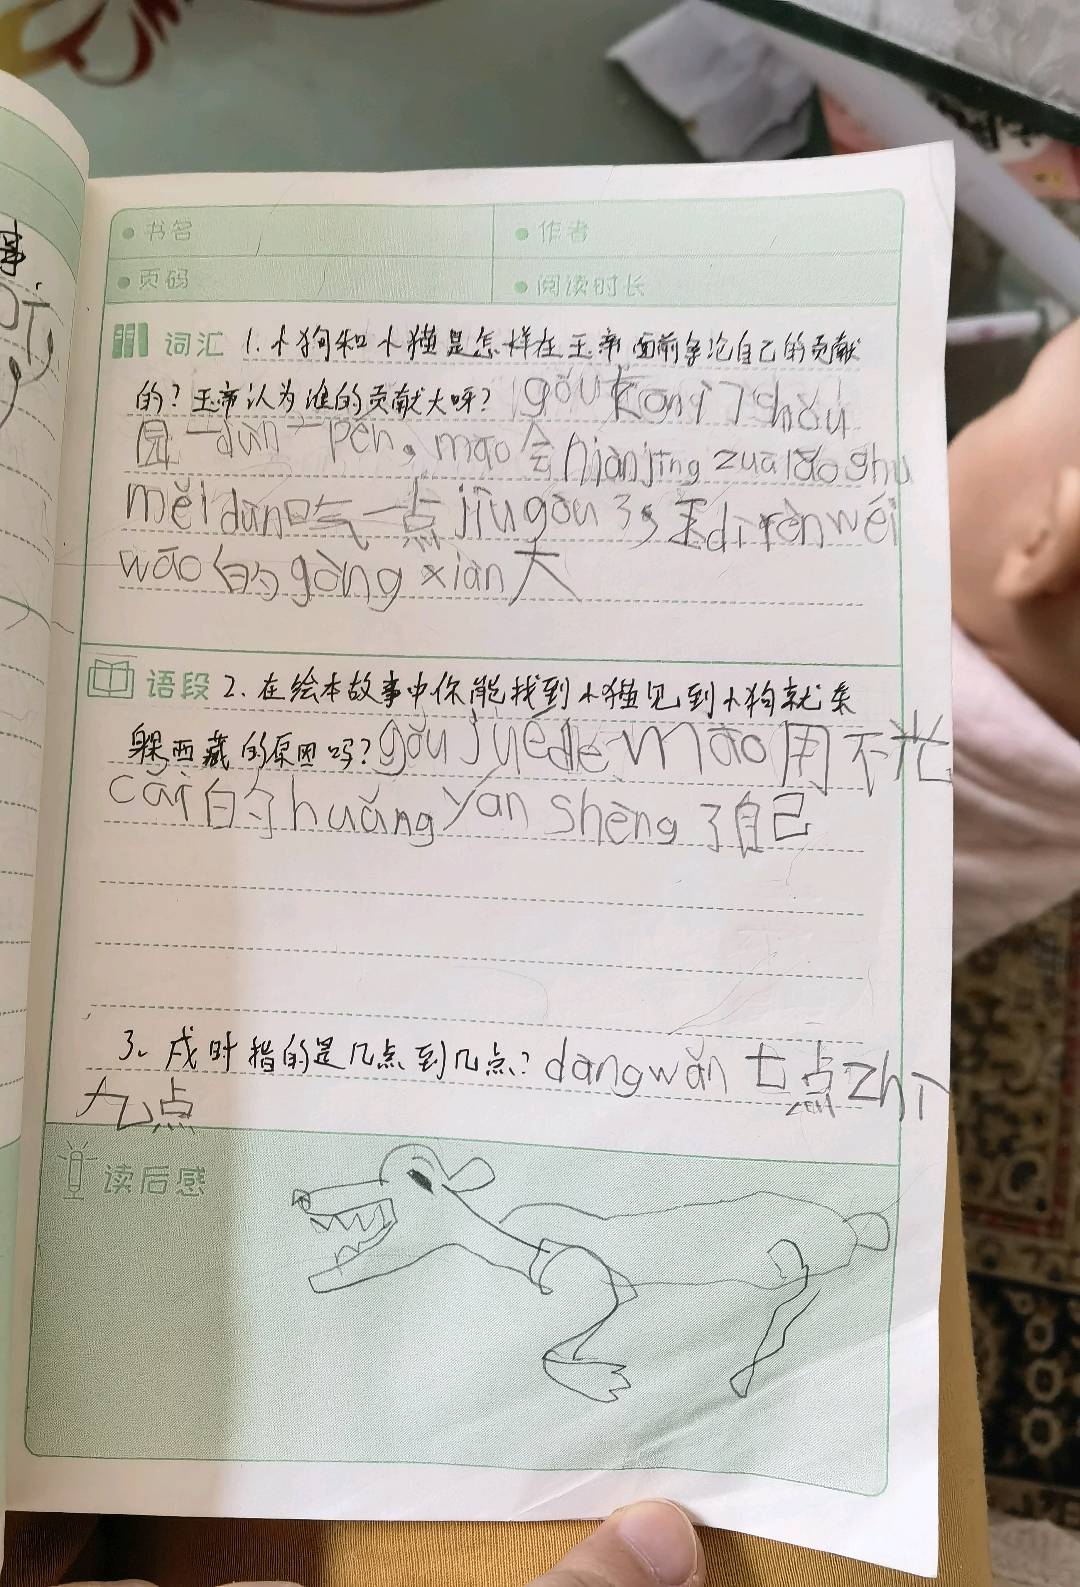 书名
作者
页码
阅读时长
词汇 1.小狗和小猫是怎样在玉帝面前争论自己的贡献
的?玉帝认为谁的贡献大呀? gǒu
园一dùn 一pén, māo 会 niánjīng zuālǎoshu
měi dùn 吃一点 jiù gòu 了, 玉dì rèn wéi
wāo 的 gòng xiàn 大
语段 2.在绘本故事中你能找到小猫见到小狗就东
躲西藏的原因吗? gǒu juéde māo 用不光
cǎi 的 huǎng yan shèng 了自己
3、戌时指的是几点到几点? dāngwǎn 七点 zhì
九点
读后感